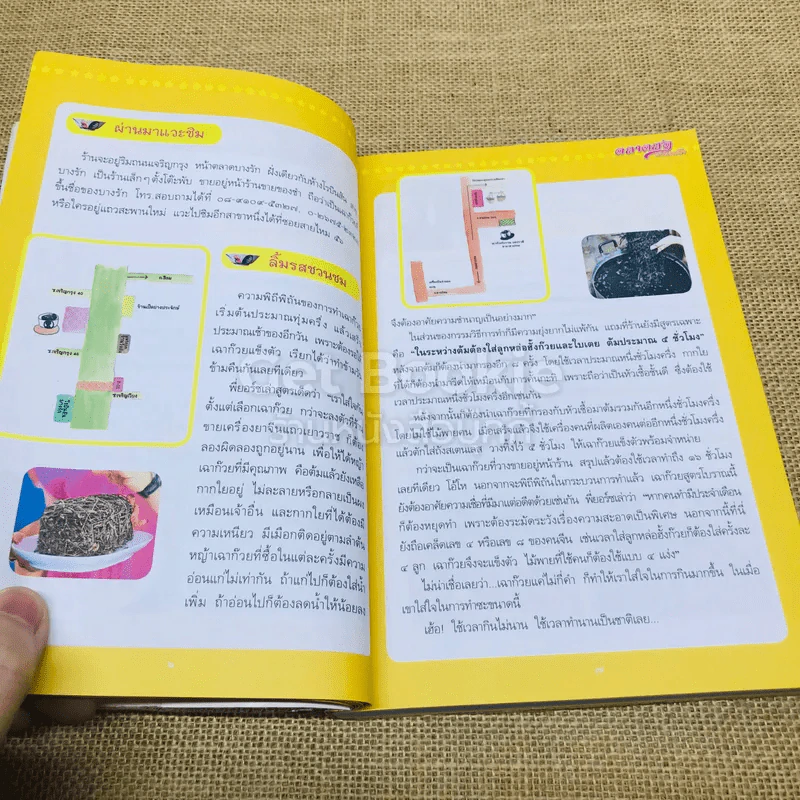 ผ่านมาแวะชิม
ร้านจะอยู่ริมถนนเจริญกรุง หน้าตลาดบางรัก ฝั่งเดียวกับห้างโรบินสัน
บางรัก เป็นร้านเล็กๆ ตั้งโต๊ะพับ ขายอยู่หน้าร้านขายของชำ ถือว่าเป็นเฉาก๊วย
ขึ้นชื่อของบางรัก โทร.สอบถามได้ที่ ๐๘-๙๑๐๙-๕๓๒๗, ๐-๒๖๗๕-
หรือใครอยู่แถวสะพานใหม่ แวะไปชิมอีกสาขาหนึ่งได้ที่ซอยสายไหม ๕๖
ลิ้มรสชวนชม
ความพิถีพิถันของการทำเฉาก๊วย
เริ่มต้นประมาณทุ่มครึ่ง แล้วเสร็จ
ประมาณเช้าของอีกวัน เพราะต้องรอให้
เฉาก๊วยแข็งตัว เรียกได้ว่าทำข้าม
ข้ามคืนกันเลยทีเดียว
พี่ยอร์ชเล่าสูตรเด็ดว่า "เราใส่ใจ
ตั้งแต่เลือกเฉาก๊วย กว่าจะลงตัวที่ร้าน
ขายเครื่องยาจีนแถวเยาวราช ก็ต้อง
ลองผิดลองถูกอยู่นาน เพื่อให้ได้หญ้า
เฉาก๊วยที่มีคุณภาพ คือต้มแล้วยังเหลือ
กากใยอยู่ ไม่ละลายหรือกลายเป็นผง
เหมือนเจ้าอื่น และกากใยที่ได้ต้องมี
ความเหนียว มีเมือกติดอยู่ตามลำต้น
หญ้าเฉาก๊วยที่ซื้อในแต่ละครั้งมีความ
อ่อนแก่ไม่เท่ากัน ถ้าแก่ไปก็ต้องใส่น้ำ
เพิ่ม ถ้าอ่อนไปก็ต้องลดน้ำให้น้อยลง
จึงต้องอาศัยความชำนาญเป็นอย่างมาก"
ในส่วนของกรรมวิธีการทำก็มีความยุ่งยากไม่แพ้กัน แถมที่ร้านยังมีสูตรเฉพาะ
คือ "ในระหว่างต้มต้องใส่ลูกหล่อฮั้งก๊วยและใบเตย ต้มประมาณ ๔ ชั่วโมง"
หลังจากต้มก็ต้องนำมากรองอีก ๔ ครั้ง โดยใช้เวลาประมาณหนึ่งชั่วโมงครึ่ง กากใย
ที่ได้ก็ต้องนำมารีดให้เหลือแต่กากเท่านั้น เพราะถือว่าเป็นหัวเชื้อชั้นดี ซึ่งต้องใช้
เวลาประมาณหนึ่งชั่วโมงครึ่งอีกเช่นกัน
หลังจากนั้นก็ต้องนำเฉาก๊วยที่กรองกับหัวเชื้อมาต้มรวมกันอีกหนึ่งชั่วโมงครึ่ง
โดยไม่ใช้ไม้พายคน เมื่อเสร็จแล้วจึงใช้เครื่องคนที่ผลิตเองคนต่ออีกหนึ่งชั่วโมงครึ่ง
แล้วตักใส่ถังสเตนเลส วางทิ้งไว้ ๕ ชั่วโมง ให้เฉาก๊วยแข็งตัวพร้อมจำหน่าย
กว่าจะเป็นเฉาก๊วยที่วางขายอยู่หน้าร้าน สรุปแล้วต้องใช้เวลาทำถึง ๑๖ ชั่วโมง
เลยทีเดียว โอ้โห นอกจากจะพิถีพิถันในกระบวนการทำแล้ว เฉาก๊วยสูตรโบราณนี้
ยังต้องอาศัยความเชื่อที่มีมาแต่อดีตด้วยเช่นกัน พี่ยอร์ชเล่าว่า "หากคนทำมีประจำเดือน
ก็ต้องหยุดทำ เพราะต้องระมัดระวังเรื่องความสะอาดเป็นพิเศษ นอกจากนี้ที่นี่
ยังถือเคล็ดเลข ๔ หรือเลข ๘ ของคนจีน เช่นเวลาใส่ลูกหล่อฮั้งก๊วยก็ต้องใส่ครั้งละ
๔ ลูก เฉาก๊วยจึงจะแข็งตัว ไม้พายที่ใช้คนก็ต้องใช้แบบ ๔ แง่ง"
ไม่น่าเชื่อเลยว่า...เฉาก๊วยแค่ไม่กี่คำ ก็ทำให้เราใส่ใจในการกินมากขึ้น ในเมื่อ
เขาใส่ใจในการทำซะขนาดนี้
เฮ้อ! ใช้เวลากินไม่นาน ใช้เวลาทำนานเป็นชาติเลย...
Get Bookie